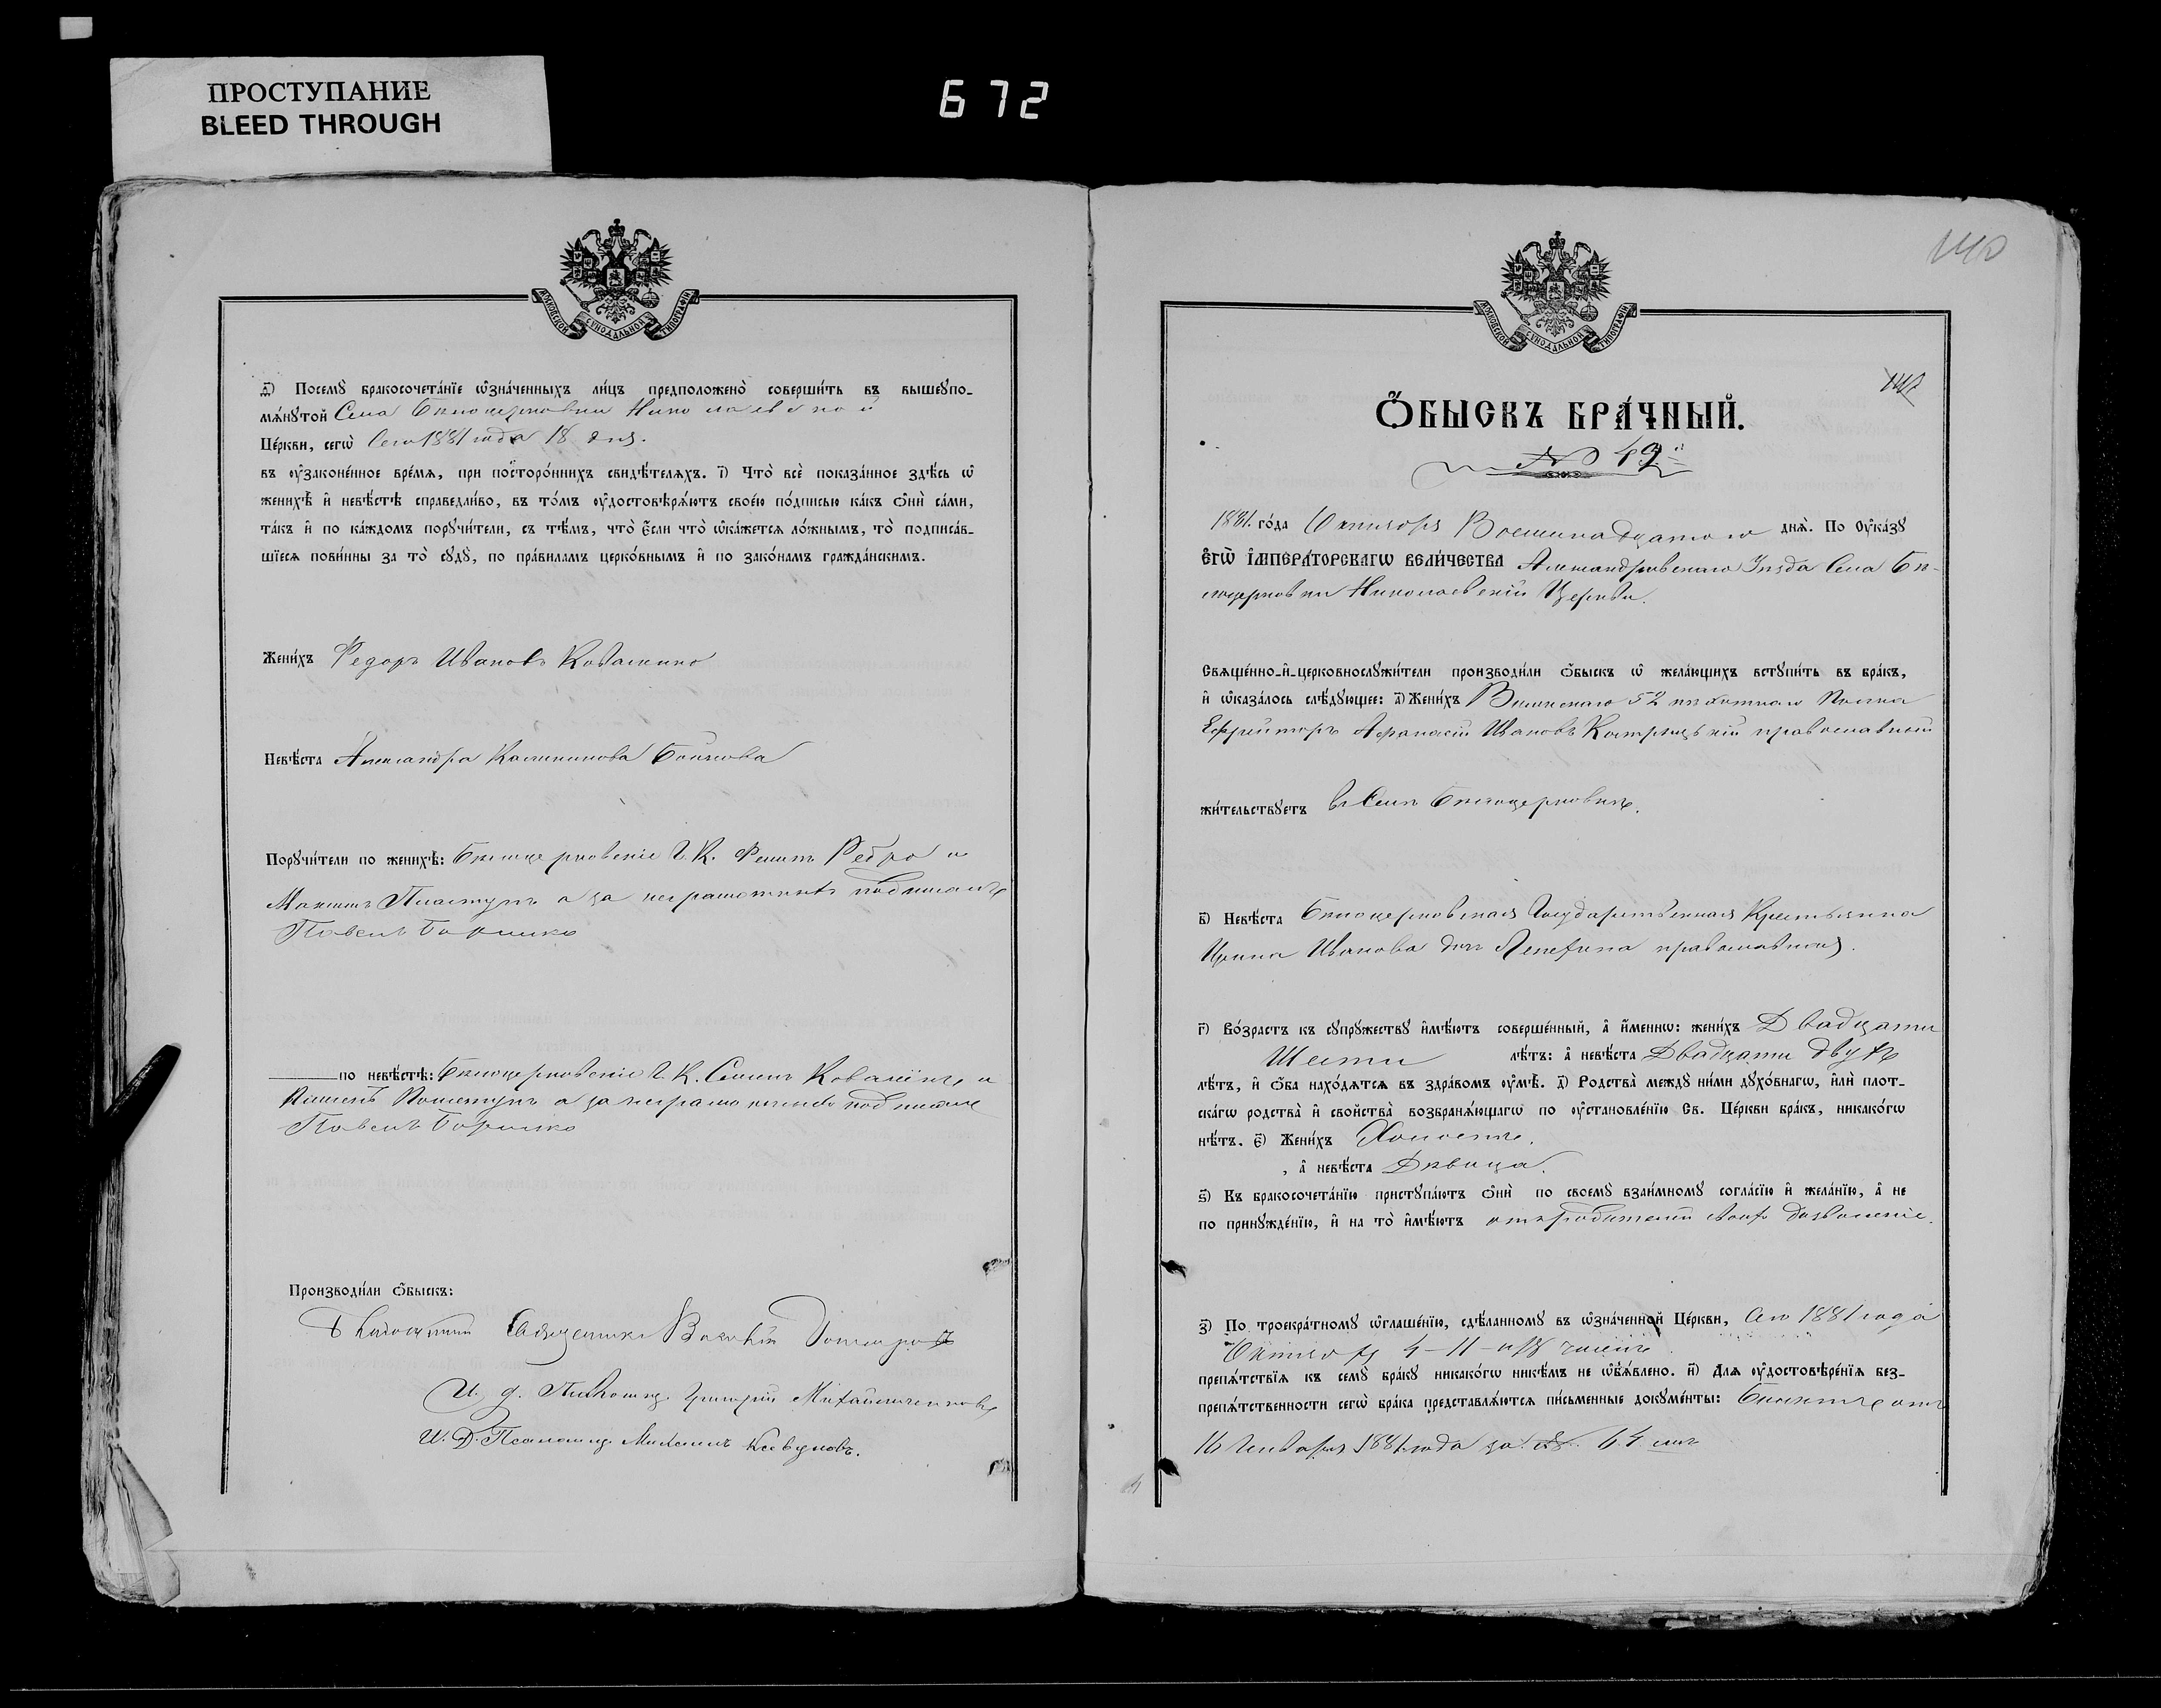 ПРОСТУПАНИЕ
BLEED THROUGH
672
МОСКОВСКОЙ СѴНОДАЛЬНОЙ ТИПОГРАФІИ
д҃) Посемꙋ̀ бракосочета́нїе ѡ҆зна́ченныхъ ли́цъ предположено̀ соверши́ть въ вышеꙋпо-
мѧ́нꙋтой Села Бѣлоцерковки Николаевской
Це́ркви, сегѡ̀ Сего 1881 года 18 дня.
въ ᲂу҆законе́нное вре́мѧ, при посторо́ннихъ свидѣ́телѧхъ. і҃) Что̀ всѐ показа́нное здѣ́сь ѡ҆
женихѣ̀ и҆ невѣ́стѣ справедли́во, въ то́мъ ᲂу҆достовѣрѧ́ютъ свое́ю по́дписью ка́къ ѻ҆нѝ са́ми,
та́къ и҆ по ка́ждомъ порꙋчи́тели, съ тѣ́мъ, что̀ є҆́сли что̀ ѡ҆ка́жетсѧ ло́жнымъ, то̀ подписа́в-
шїесѧ пови́нны за то̀ сꙋдꙋ̀, по пра́виламъ церко́внымъ и҆ по зако́намъ гражда́нскимъ.
Жени́хъ Федоръ Ивановъ Ковалино
Невѣ́ста Александра Калиникова Бойкова
Порꙋчи́тели по женихѣ̀: Бѣлоцерковскіе Г. К. Филипъ Ребро и
Максимъ Пластунъ а за неграмотныхъ подписалъ
Павелъ
по невѣ́стѣ: Бѣлоцерковскіе Г. К. Семенъ и
а за неграмотныхъ подписалъ
Павелъ
Производи́ли ѻ҆́быскъ:
Благочинный Священникъ Василій
И. д. Псаломщ. Григорій
И. Д. Псаломщ.
140
147
Ѻ҆́БЫСКЪ БРА́ЧНЫЙ.
№ 49й
1881. го́да Октября Восемнадцатаго днѧ̀. По Оу҆ка́зꙋ
Є҆ГѠ̀ И҆МПЕРА́ТОРСКАГѠ ВЕЛИ́ЧЕСТВА Александровскаго Уѣзда Села Бѣ-
лоцерковки Николаевской Церкви.
Свѧще́нно-и҆-церковнослꙋжи́тели производи́ли ѻ҆́быскъ ѡ҆ жела́ющихъ встꙋпи́ть въ бра́къ,
и҆ ѡ҆каза́лось слѣ́дꙋющее: а҃) Жени́хъ Виленскаго 52 пѣхотнаго Полка
Ефрейторъ Афанасій Ивановъ православный
жи́тельствꙋетъ въ Селѣ Бѣлоцерковкѣ.
в҃) Невѣ́ста Бѣлоцерковская Государственная Крестьянка
Ирина Иванова дочь Лепехина православная.
г҃) Во́зрастъ къ сꙋпрꙋ́жествꙋ и҆мѣ́ютъ соверше́нный, а҆ и҆́меннѡ: жени́хъ Двадцати
Шести лѣ́тъ: а҆ невѣ́ста Двадцати двухъ
лѣ́тъ, и҆ ѻ҆́ба нахо́дѧтсѧ въ здра́вомъ ᲂу҆мѣ̀. д҃) Родства̀ междꙋ̀ ни́ми дꙋхо́внагѡ, и҆лѝ плот-
ска́гѡ родства̀ и҆ свойства̀ возбранѧ́ющагѡ по ᲂу҆становле́нїю Св. Це́ркви бра́къ, никако́гѡ
нѣ́тъ. є҃) Жени́хъ Холостъ.
, а҆ невѣ́ста Дѣвица.
ѕ҃) Къ бракосочета́нїю пристꙋпа́ютъ ѻ҆нѝ по своемꙋ̀ взаи́мномꙋ согла́сїю и҆ жела́нїю, а҆ не
по принꙋжде́нїю, и҆ на то̀ и҆мѣ́ютъ отъ родителей своихъ дозволеніе.
з҃) По троекра́тномꙋ ѡ҆глаше́нїю, сдѣ́ланномꙋ въ ѡ҆зна́ченной Це́ркви, сего 1881 года
Октября 4 - 11 - и 18 чиселъ
препѧ́тствїѧ къ семꙋ̀ бра́кꙋ никако́гѡ никѣ́мъ не ѡ҆б̾ѧ́влено. и҃) Длѧ ᲂу҆достовѣре́нїѧ без-
препѧ́тственности сегѡ̀ бра́ка представлѧ́ютсѧ пи́сьменные докꙋме́нты: Билетъ отъ
16 Января 1881 года за № 64